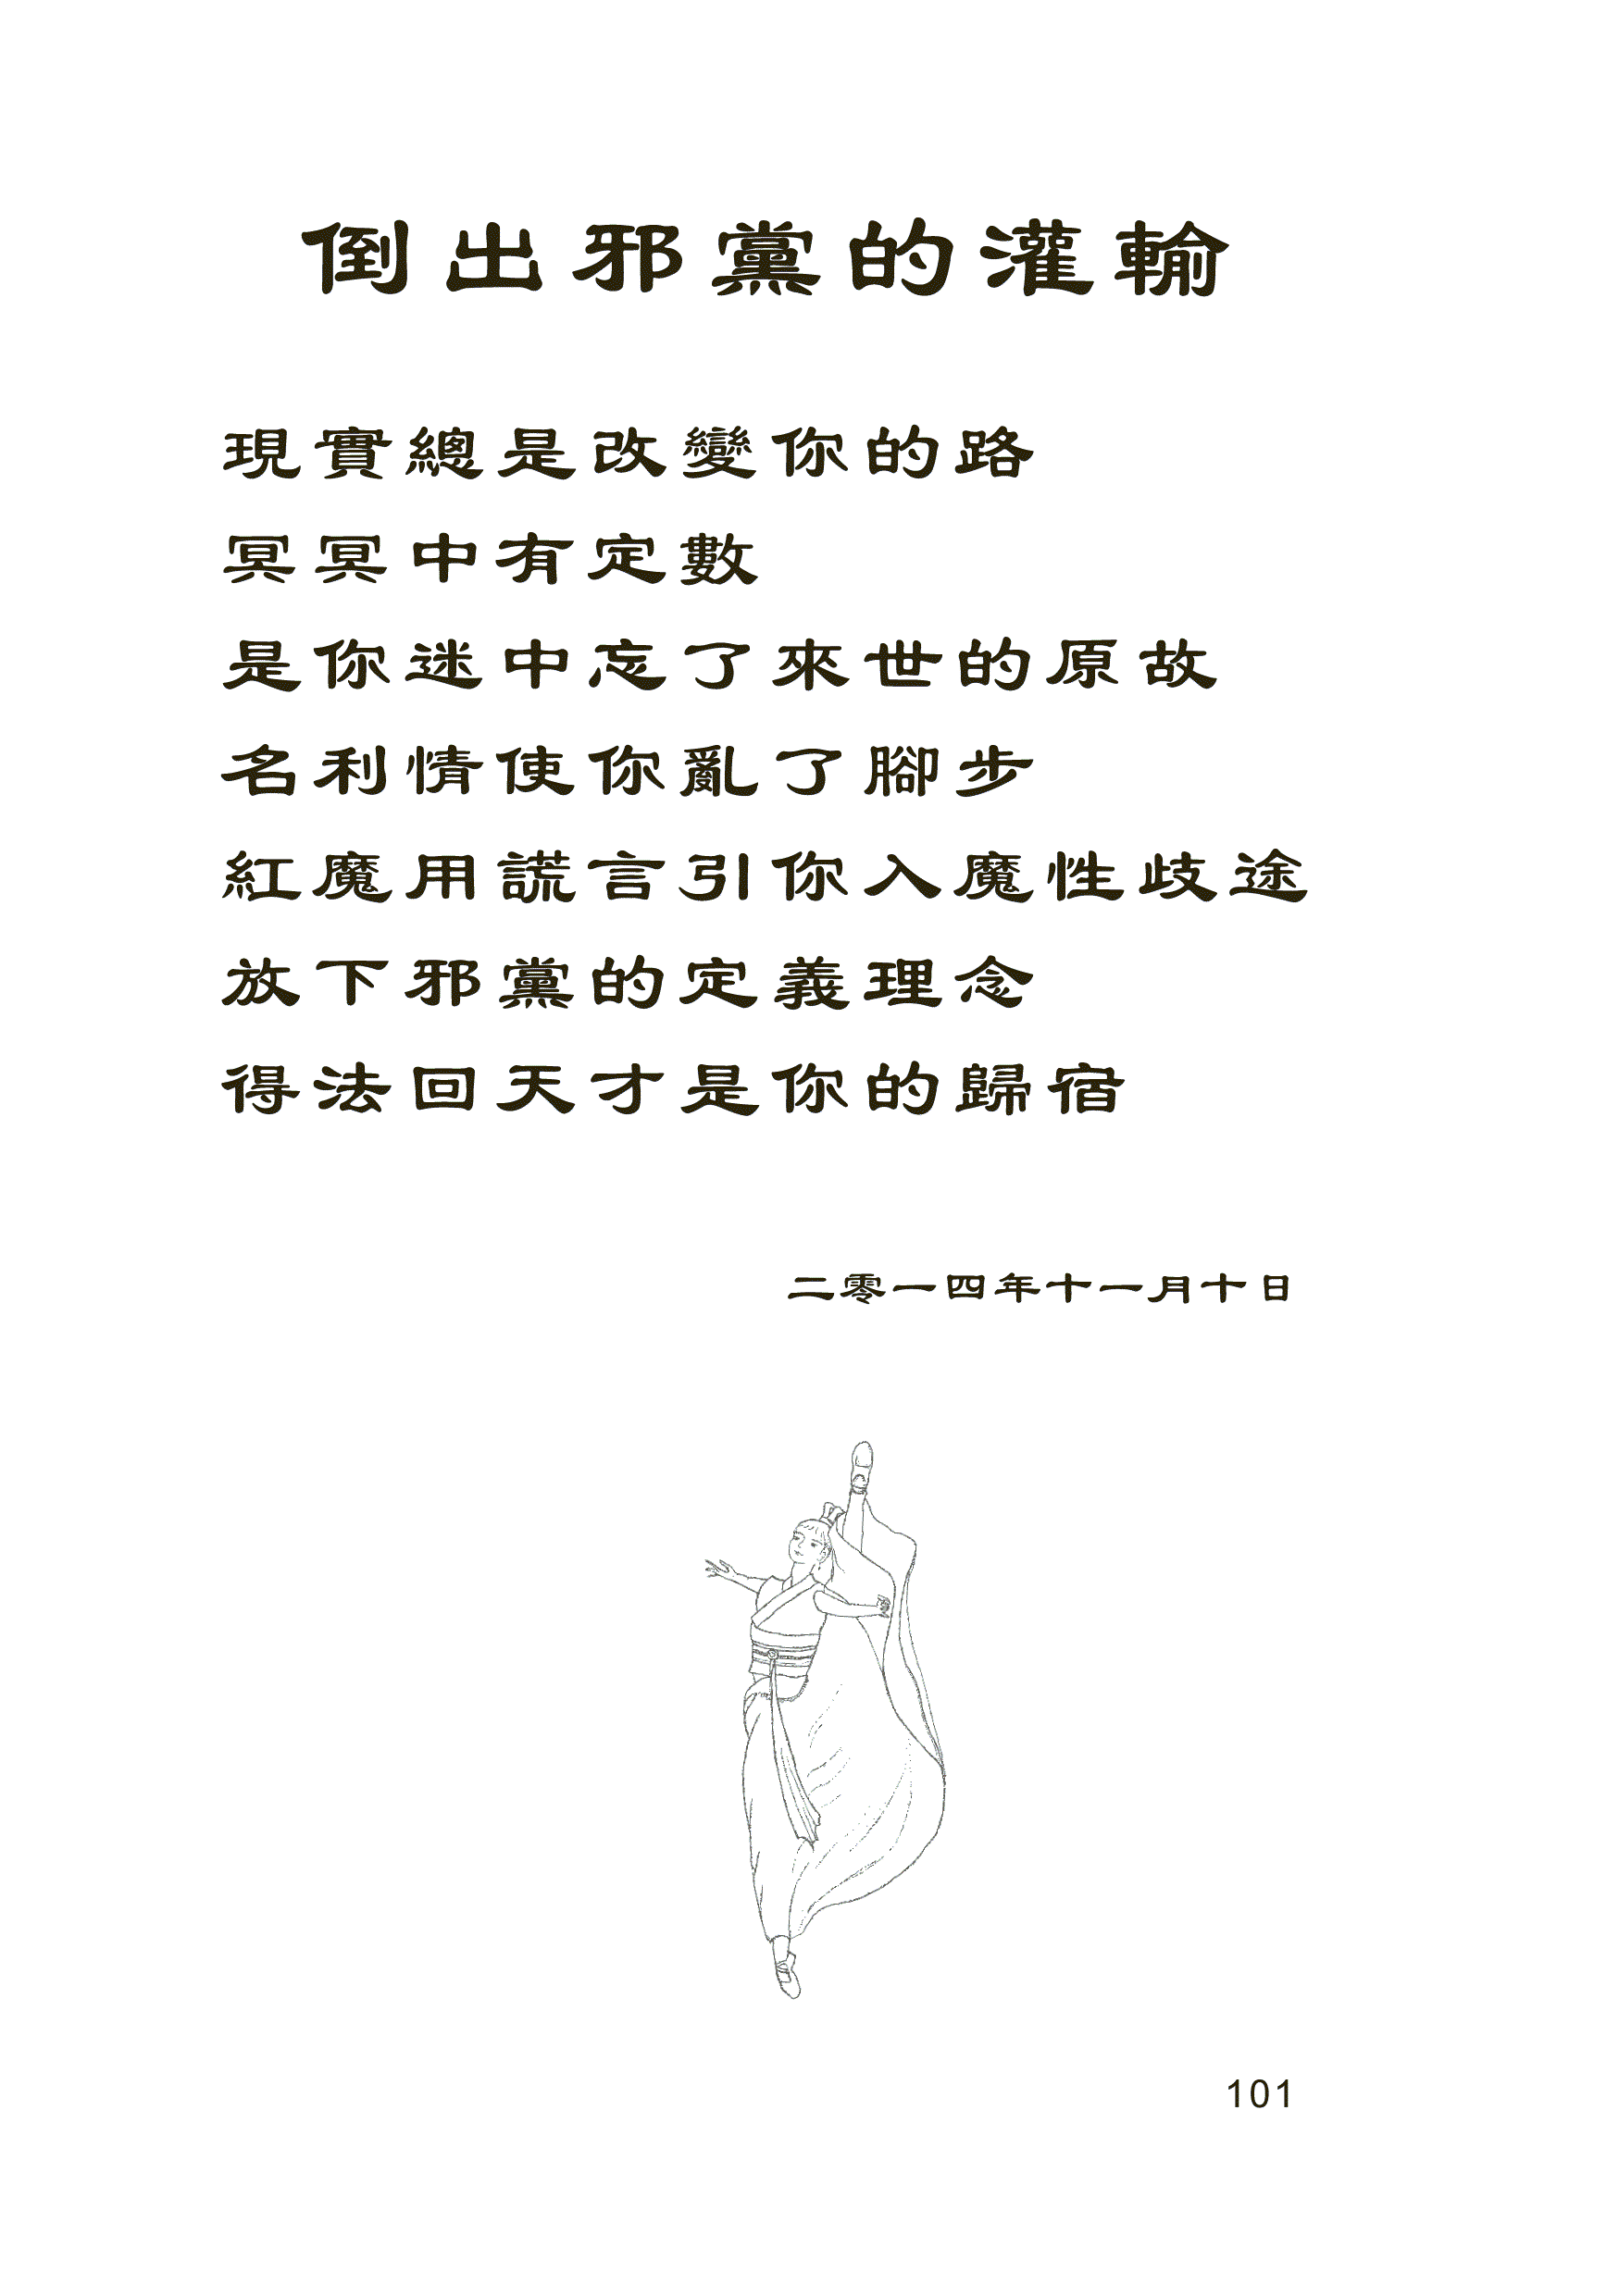 倒出邪黨的灌輸
現實總是改變你的路
冥冥中有定數
是你迷中忘了來世的原故
名利情使你亂了腳步
紅魔用謊言引你入魔性歧途
放下邪黨的定義理念
得法回天才是你的歸宿
二零一四年十一月十日
101